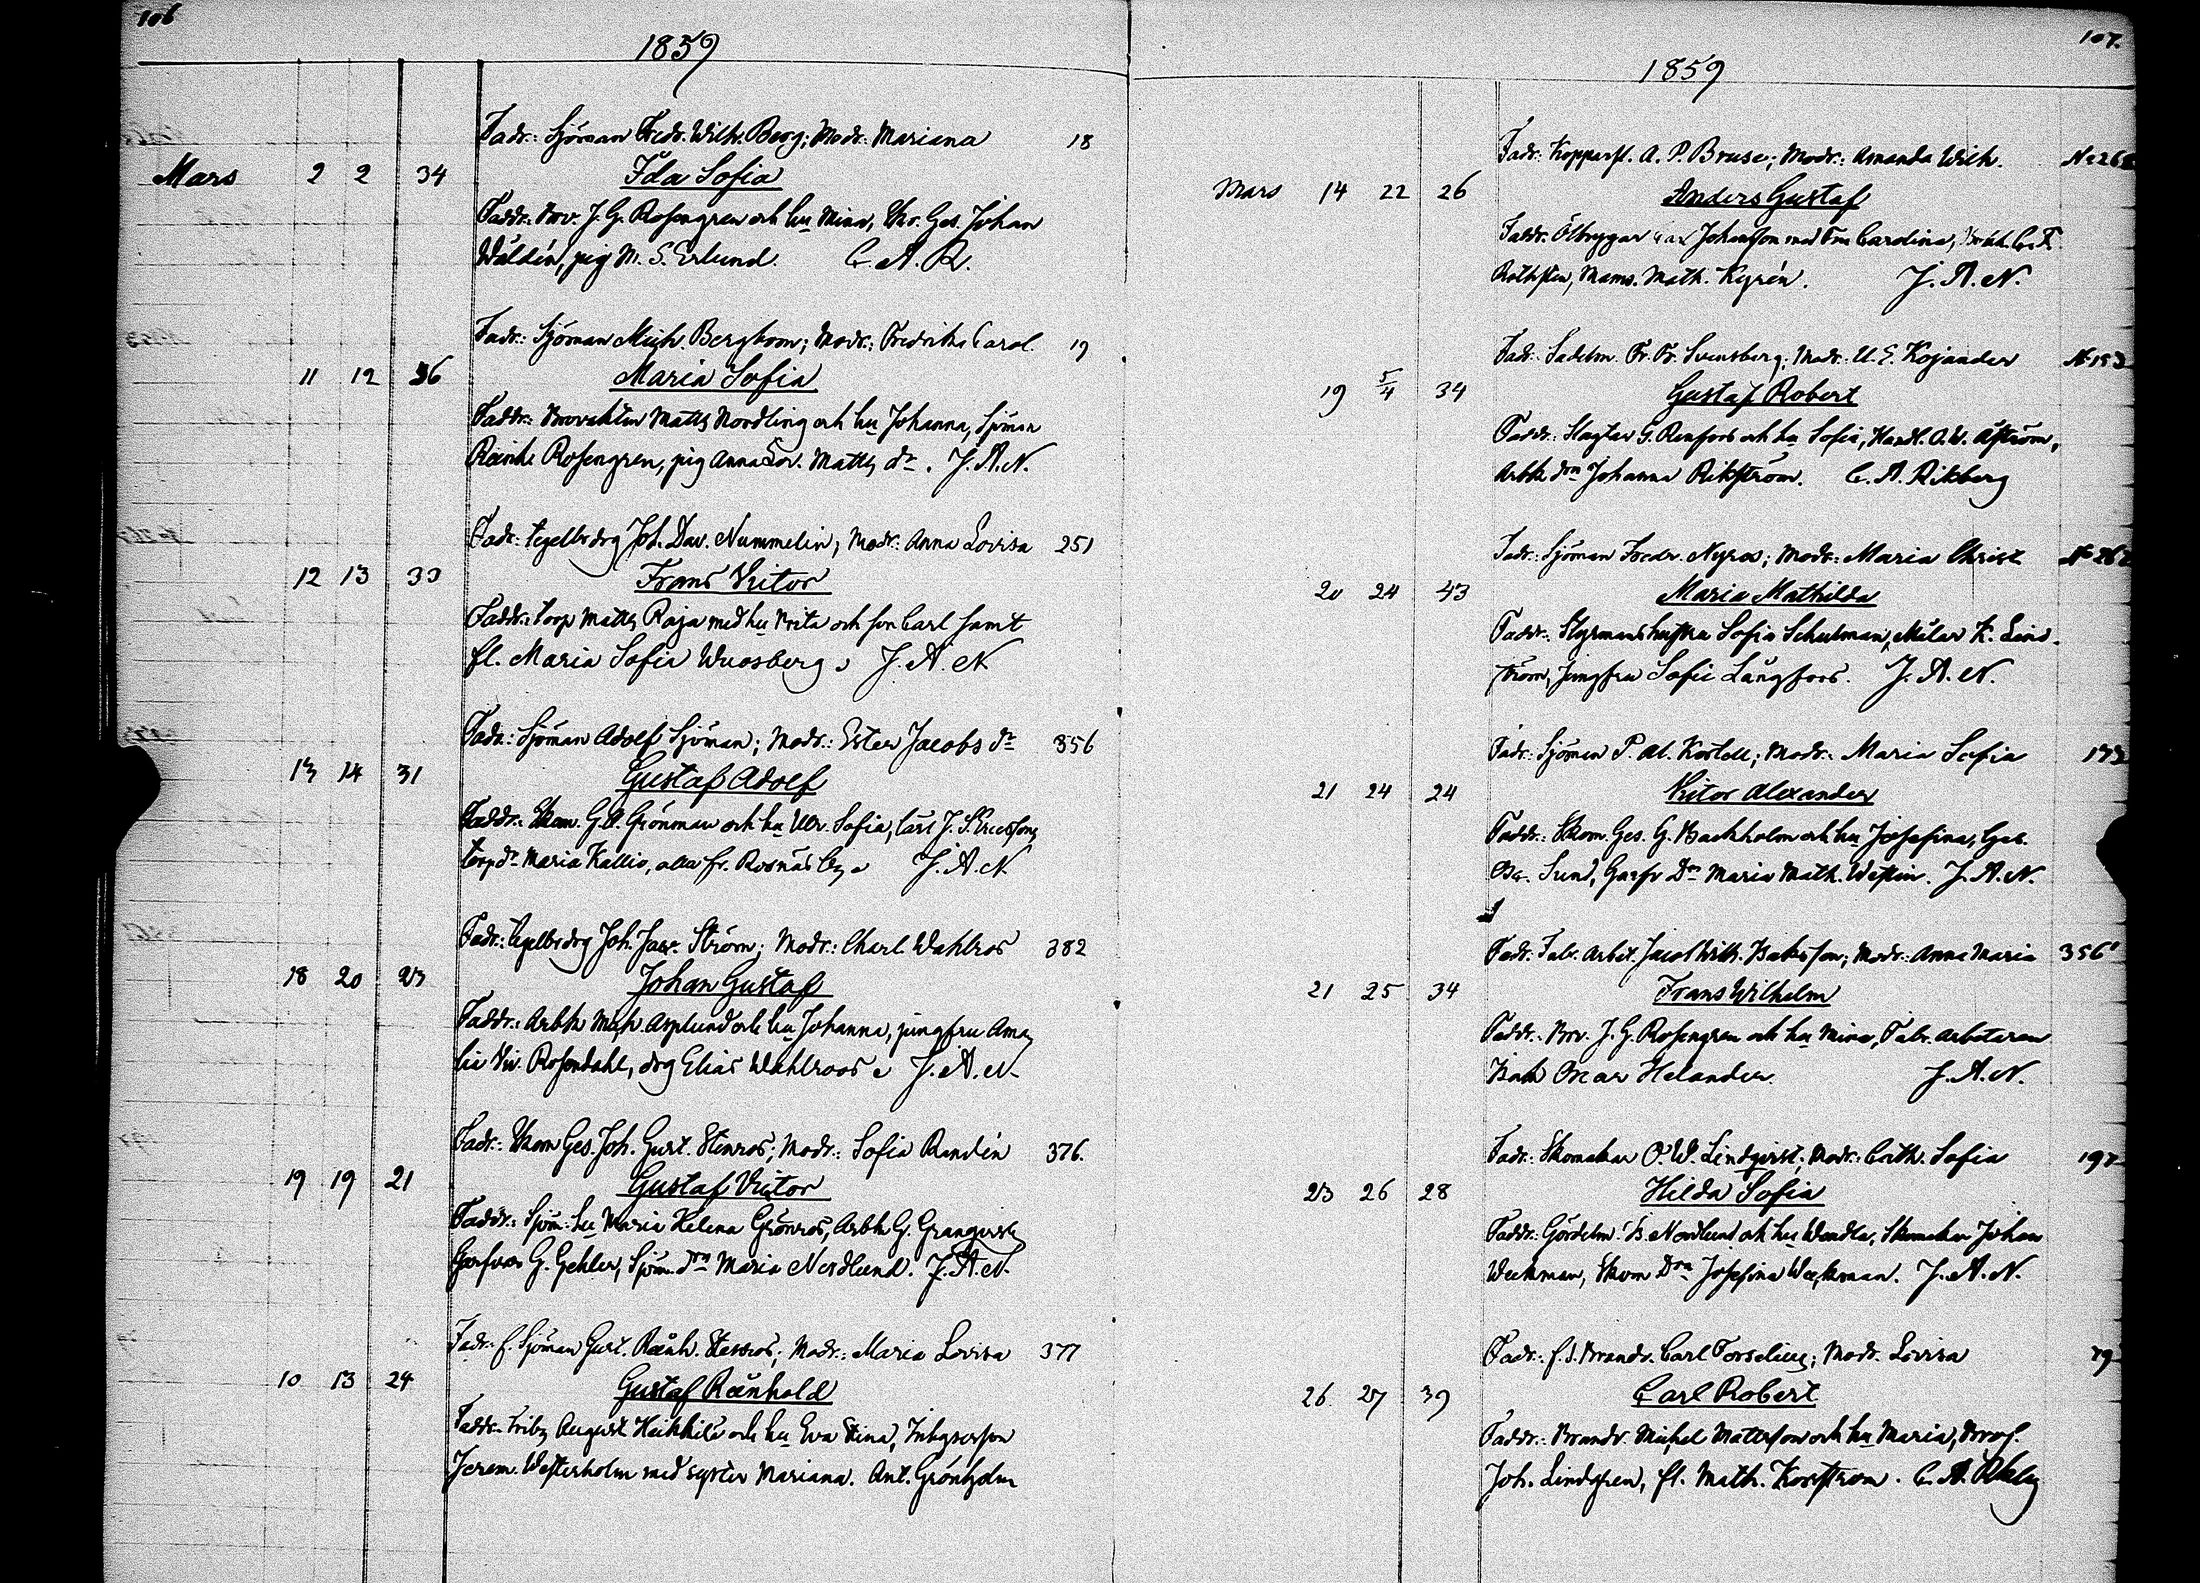 106
1859
Fadr: Sjöman Fredr. Wilh. Berg; Modr: Mariana 18
Mars 2 2 34 Ida Sofia
Faddr: Prov. J. G. Rosengren och hu Mina, Skr. Ges. Johan
Waldén, pig M. S. Erlund. C. A. R.
Fadr: Sjöman Mich. Bergbom; Modr: Fredrika Carol. 19
11 12 36 Maria Sofia
Faddr: Matts Nordling och hu Johanna, Sjöman
Reinh. Rosengren, pig Anna Lov. Matts dr. J. A. N.
Fadr: tegelbr drg Joh. Dav. Nummelin; Modr: Anna Lovisa 251
12 13 30 Frans Victor
Faddr: torp Matts Raja med hu Brita och son Carl samt
fl. Maria Sofia Wuosberg J. A. N
Fadr: Sjöman Adolf Sjöman; Modr: Ester Jacobs dr 356
13 14 31 Gustaf Adolf
Faddr: Skom. G. A. Grönman och hu Ulr. Sofia, Carl J. S. Ericsson,
torp dr Maria Kallio, alla fr. Rosnäs by J. A. N
Fadr: tegelbr drg Joh. Jac. Ström; Modr: Charl. Wahlros 382
18 20 23 Johan Gustaf
Faddr: Arbk Mich. Asplund och hu Johanna, jungfru Ama
lia Vil. Rosendahl, drg Elias Wahlroos J. A. N
Fadr: Skom Ges. Joh. Gust. Stenros; Modr: Sofia Randén 376.
19 19 21 Gustaf Victor
Faddr: Sjöm. hu Maria Helena Grönros, Arbk G. Granqvist
G. Gehler, Sjöm. drn Maria Nordlund. J. A. N.
Fadr: f. Sjöman Gust. Reinh. Stenros; Modr: Maria Lovisa 377
10 13 24 Gustaf Reinhold
Faddr: August Heikkilä och hu Eva Stina, Inhyserson
Jerem. Westerholm med syster Mariana. Ant. Grönholm
107.
1859
Fadr: Kopparsl. A. P. Bruse; Modr: Amanda Wilh. No 26
Mars 14 22 26 Anders Gustaf
Faddr: Ölbryggar Carl Johansson med Fru Carolina, C. F.
Rothsten, Mams. Math. Kyrén. J. A. N.
Fadr: Sadelm. Fr. Fr. Svensberg; Modr: U. E. Kojander No 153
19 5/4 34 Gustaf Robert
Faddr: Slagtar G. Renfors och hu Sofia, Handl. O. W. Åström,
Arbk drn Johanna Rikström. C. A. Rikberg
Fadr: Sjöman Fredr. Nyros; Modr: Maria Christ No 262
20 24 43 Maria Mathilda
Faddr: Styrmanshustru Sofia Schulman, Målar K. Lind
ström, Jungfru Sofie Långfors. J. A. N.
Fadr: Sjöman P. Al. Kortell; Modr: Maria Sofia 173
21 24 24 Victor Alexander
Faddr: Skom. Ges. G. Backholm och hu Josefina, Ges.
Sund, Garfv Drn Maria Math. Westin. J. A. N.
Fadr: Fabr. Arbet. Jacob Wilh. Isaksson; Modr: Anna Maria 356
21 25 34 Frans Wilhelm
Faddr: Prov. J. G. Rosengren och hu Mina, Fabr. arbetaren
Isak Oscar Helander. J. A. N.
Fadr: Skomakar O. W. Lindqvist; Modr: Cath. Sofia 197
23 26 28 Hilda Sofia
Faddr: Gördelm. B. Nordlund och hu Wendla, Skomakar Johan
Weckman, Skom Drn Josefina Weckman. J. A. N.
Fadr: f. d. Brandv. Carl Forselius; Modr: Lovisa 79
26 27 39 Carl Robert
Faddr: Brandv. Michel Mattsson och hu Maria,
Joh. Lindgren, fl. Math. Korsström. C. A. Rikbg